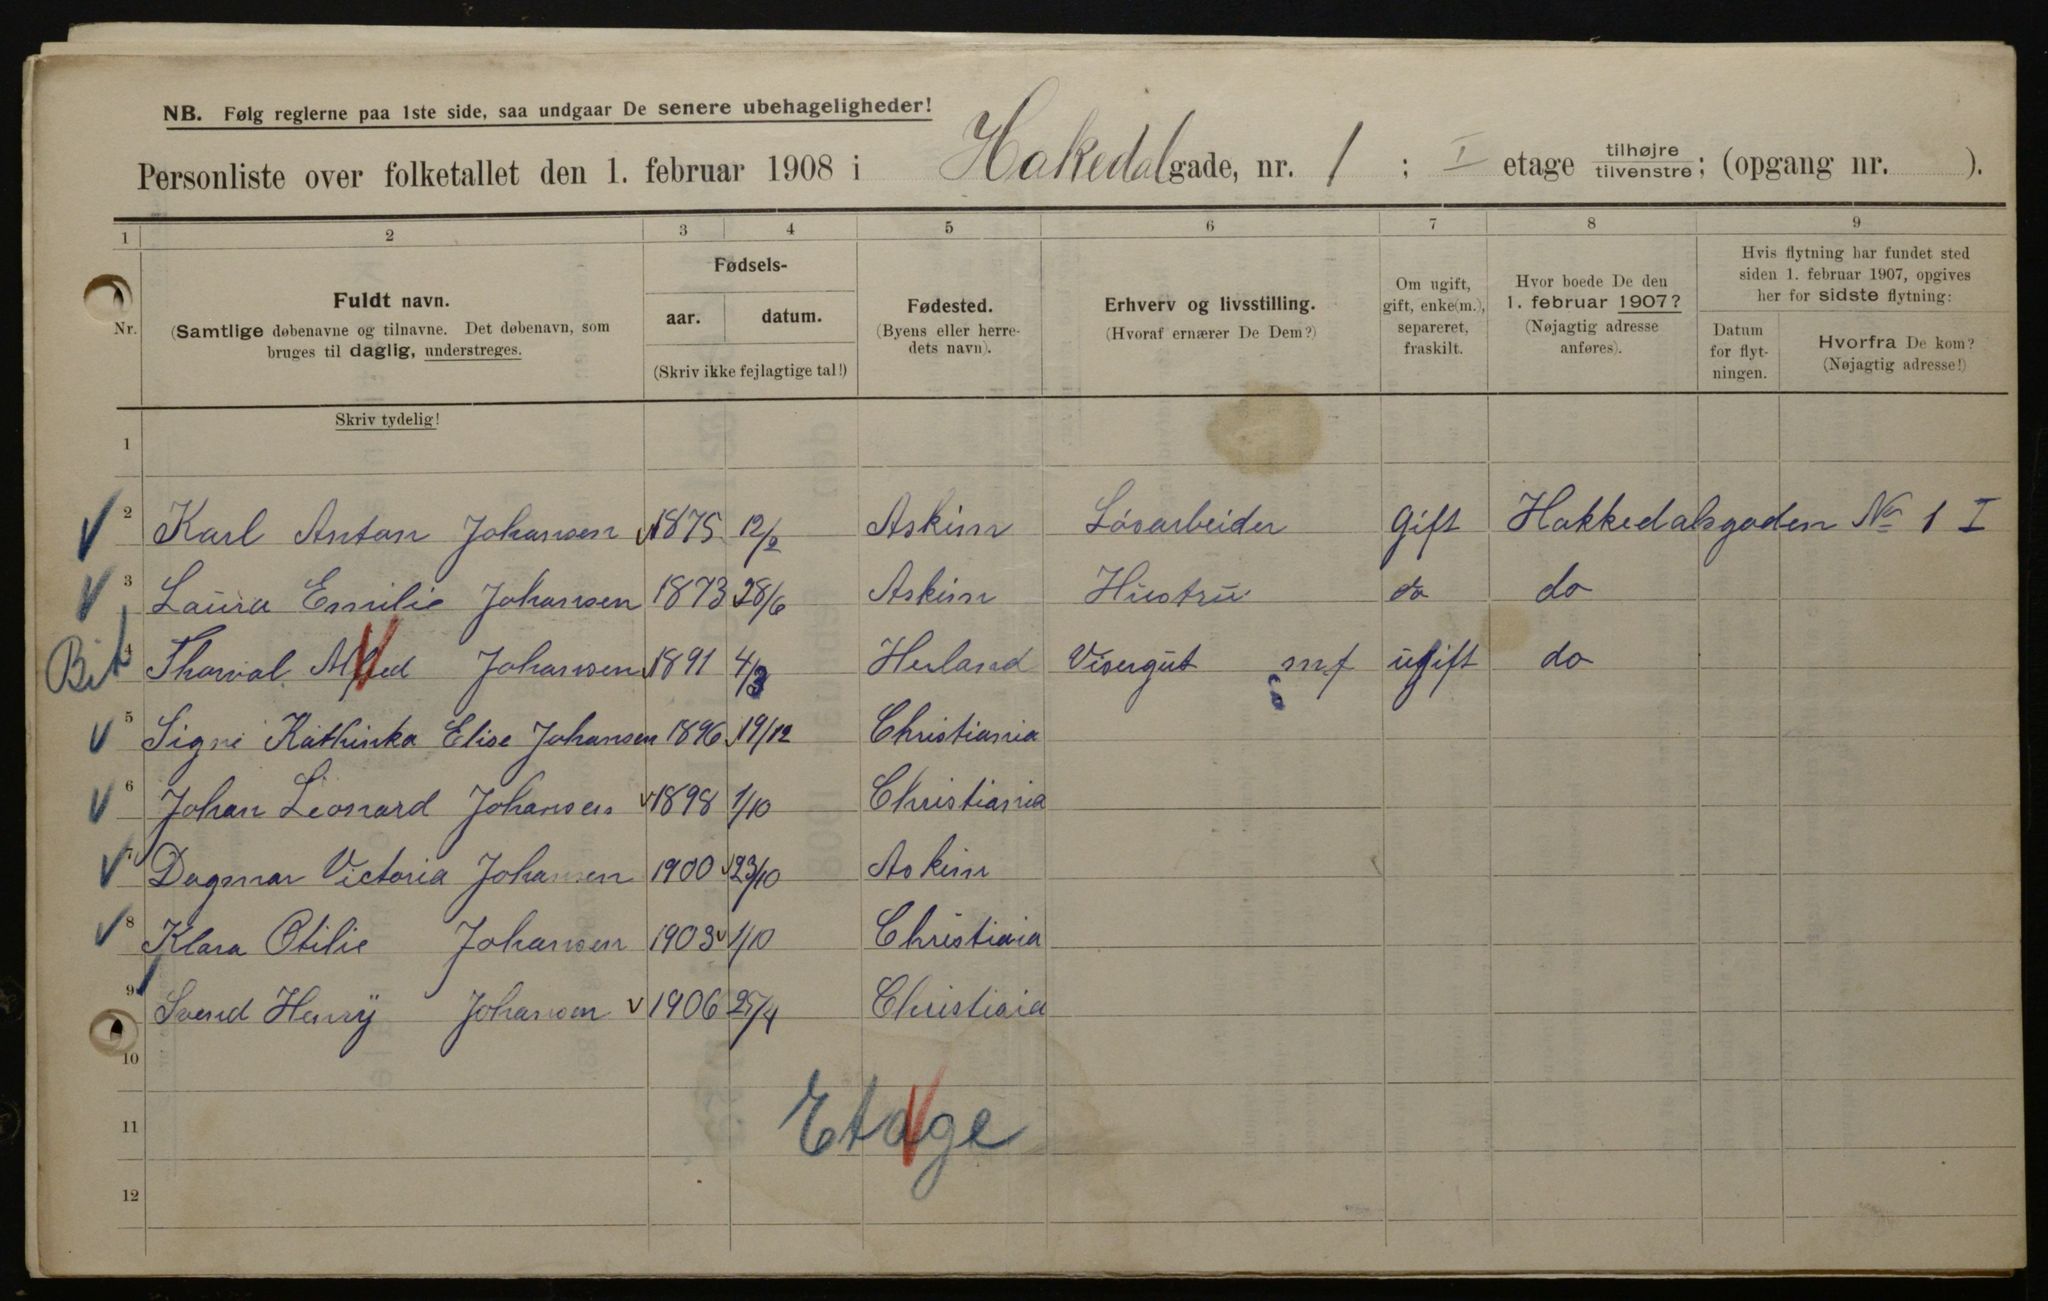 NB. Følg reglerne paa 1ste side, saa undgaar De senere ubehageligheder!
Personliste over folketallet den 1. februar 1908 i Hakedalgade, nr. 1 ; I etage tilhøjre tilvenstre; (opgang nr. ).
1 2 3 4 5 6 7 8 9
Nr.
Fuldt navn.
(Samtlige døbenavne og tilnavne. Det døbenavn, som
bruges til daglig, understreges.
Skriv tydelig!
Fødsels-
aar. datum.
(Skriv ikke fejlagtige tal!)
Fødested.
(Byens eller herre-
dets navn).
Erhverv og livsstilling.
(Hvoraf ernærer De Dem?)
Om ugift,
gift, enke(m.),
separeret,
fraskilt.
Hvor boede De den
1. februar 1907?
(Nøjagtig adresse
anføres).
Hvis flytning har fundet sted
siden 1. februar 1907, opgives
her for sidste flytning:
Datum
for flyt-
ningen.
Hvorfra De kom?
(Nøjagtig adresse!)
1
2 Karl Anton Johansen 1875 12/2 Askim Løsarbeider Gift Hakkedalsgaden No 1 I
3 Laura Emilie Johansen 1873 28/6 Askim Hustru do do
Bit 4 Thorval Alfred Johansen 1891 4/3 Herland Visergut mf ugift do
5 Signe Kathinka Elise Johansen 1896 19/12 Christiania
6 Johan Leonard Johansen 1898 1/10 Christiania
7 Dagmar Victoria Johansen 1900 23/10 Askim
8 Klara Otilie Johansen 1903 1/10 Christiaia
9 Svend Henrÿ Johansen 1906 25/4 Christiaia
10
11
Etage
12